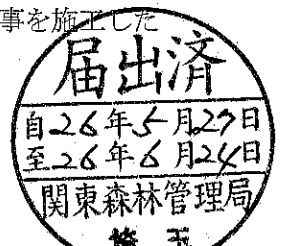 事を施工した
届出済
自26年5月27日
至26年6月24日
関東森林管理局
埼玉